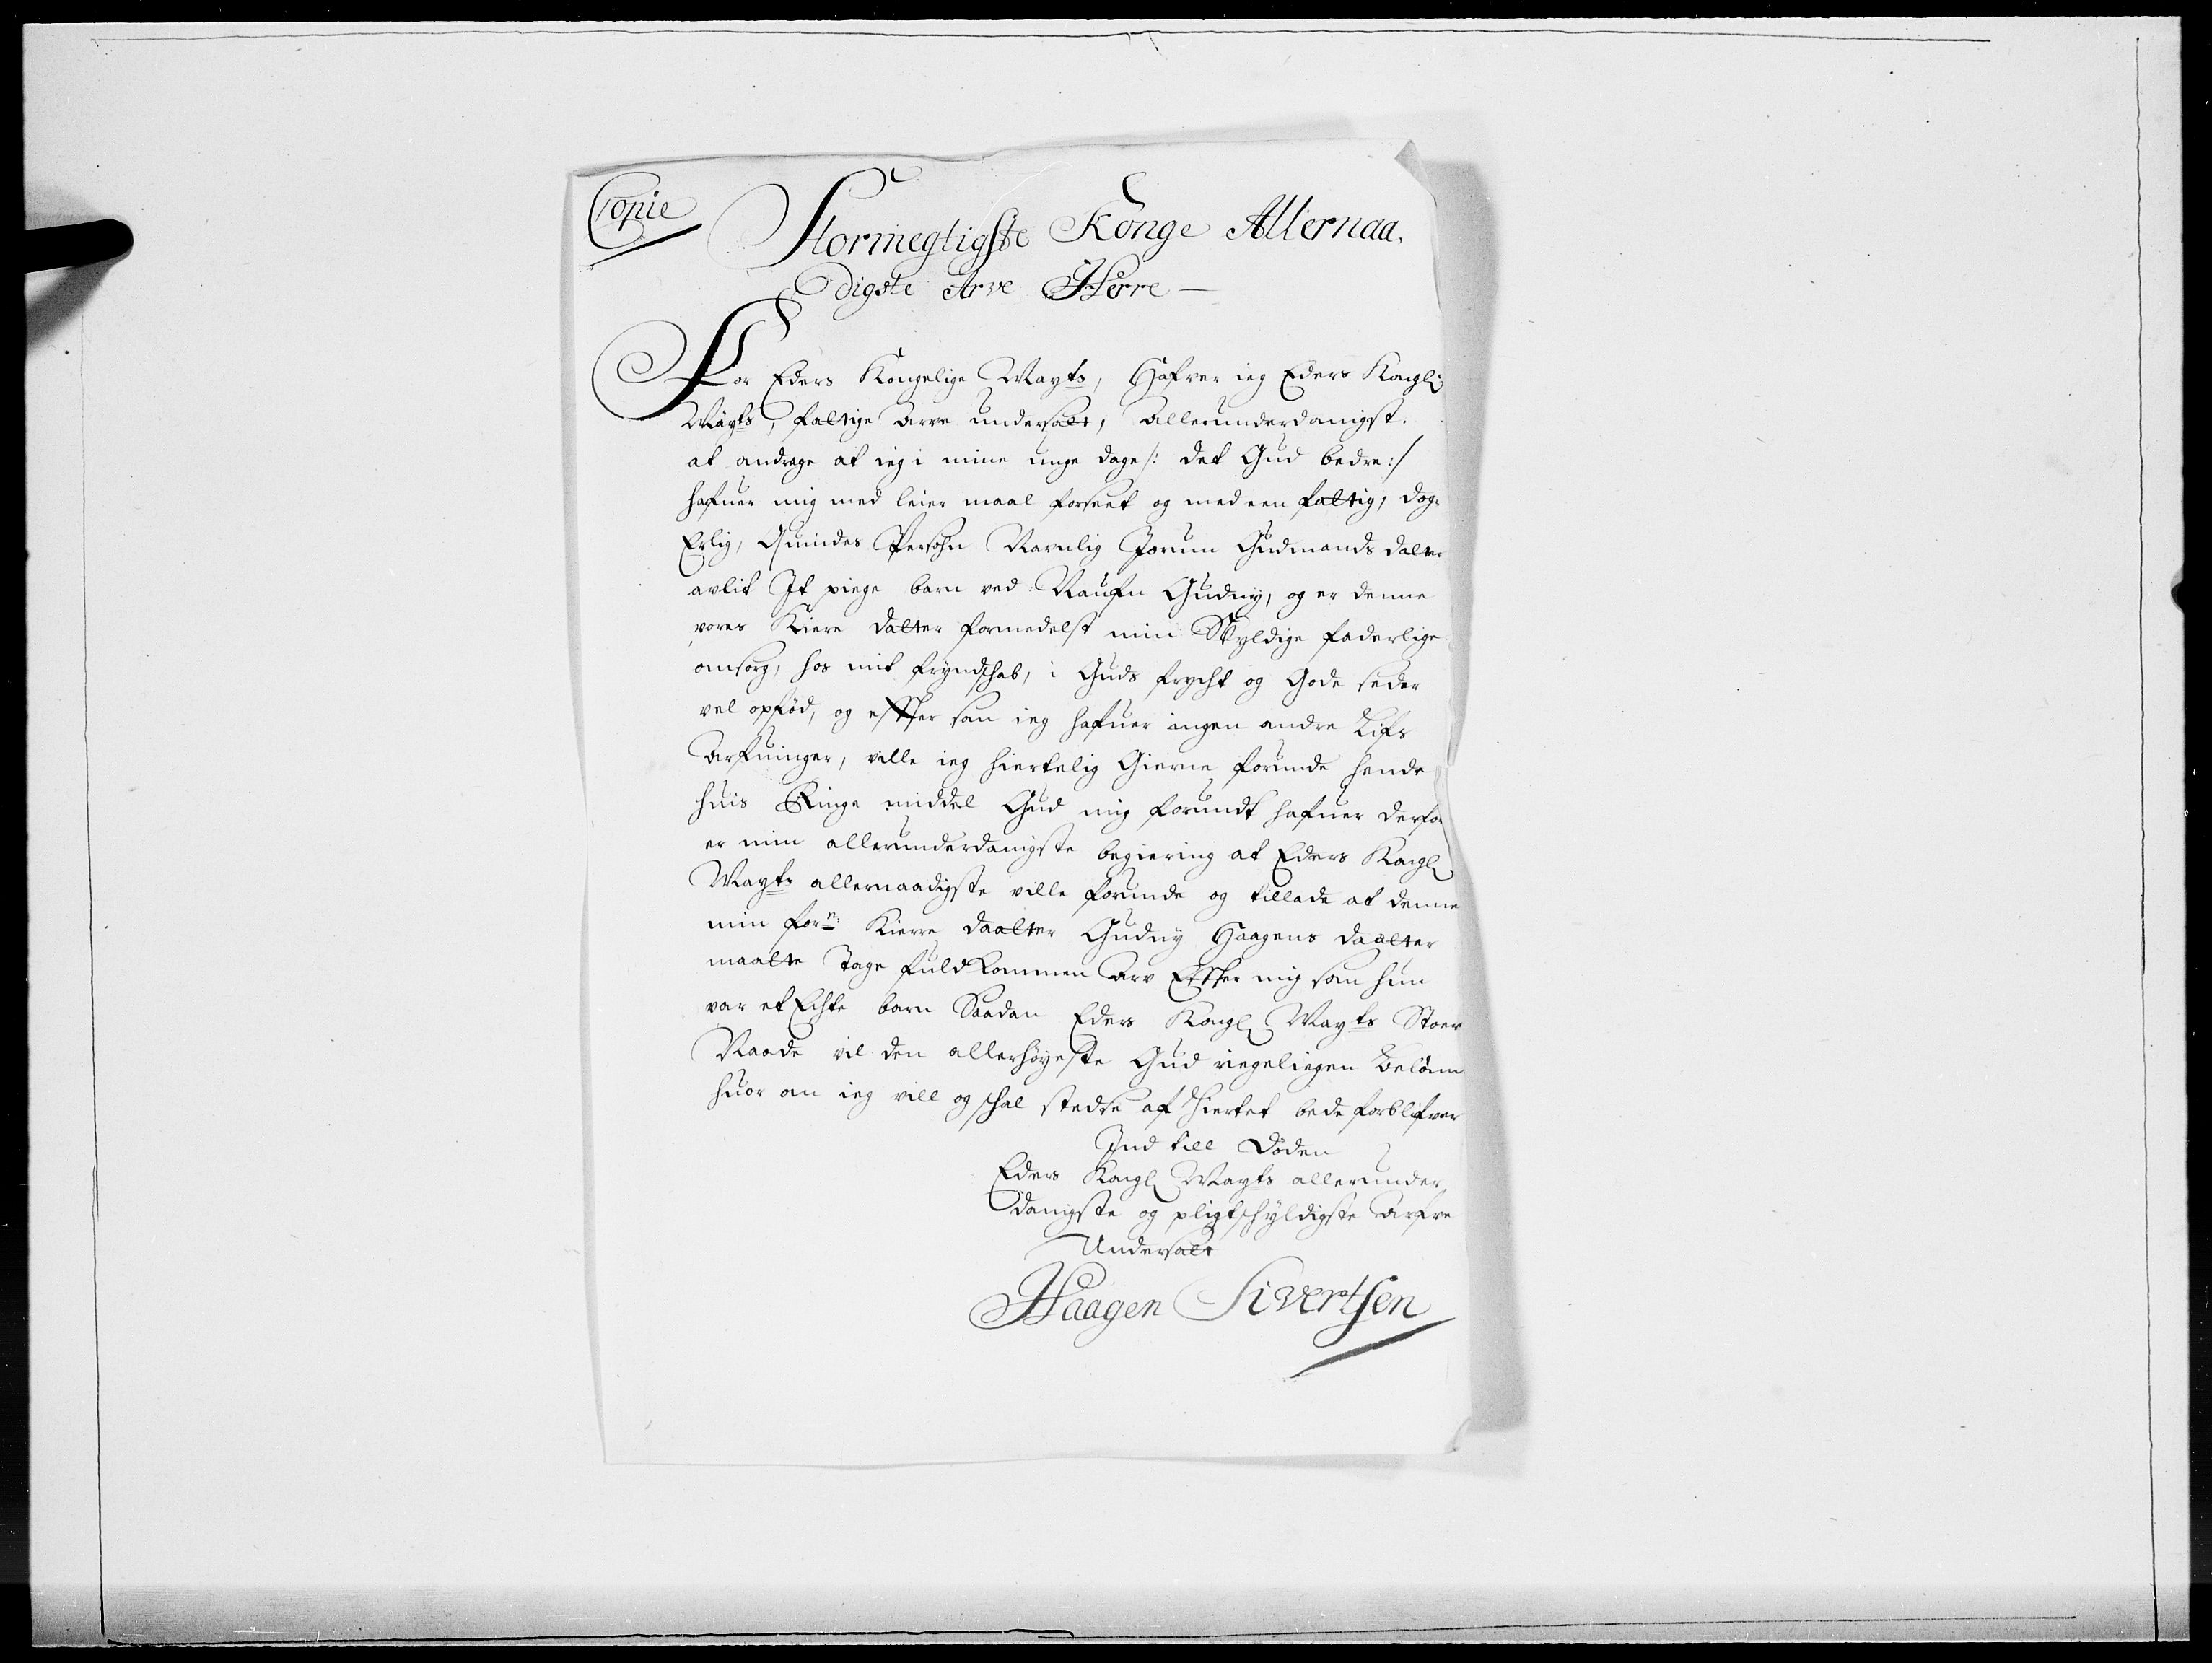 Copie
Stormegtigste Konge Allernaa,
digste Arve Herre
For Eders Kongelige Mayts, Hafver ieg Eders Kongl:
Mayts, fattige arve undersatt, allerunderdanigst.
at andrage at ieg i mine unge dage /: det Gud bedre :/
hafuer mig med leier maal forseet og med een fattig, dog
Erlig, Quindes Persohn Navnlig Jorun Gudmands datter
avlit It piege barn ved Naufn Gudny, og er denne
vores Kiere datter formedelst min Skyldige faderlige
omsorg, hos mit fryndschab, i Guds frycht og Gode seder
vel opfød, og effter som ieg hafuer ingen andre Lifs
Arfuinger, ville ieg hiertelig Gierne forunde hende
huis Ringe middel Gud mig forundt hafuer derfor
er min allerunderdanigste begiering at Eders Kongl
Mayts allernaadigste ville forunde og tillade at denne
min forn Kierre daatter Gudny Haagens daatter
maatte Tage fuldkommen Arv Effter mig som hun
var et Echte barn Saadan Eders Kongl Mayts Stoer
Naade vil den allerhøyeste Gud riegeliegen Belønne
huor om ieg vill og schal stedse af Hiertet bede forblifver
Ind till Døden
Eders Kongl Mayts allerunder
danigste og pligtschyldigste Arfve
Undersatt
Haagen Sivertsen